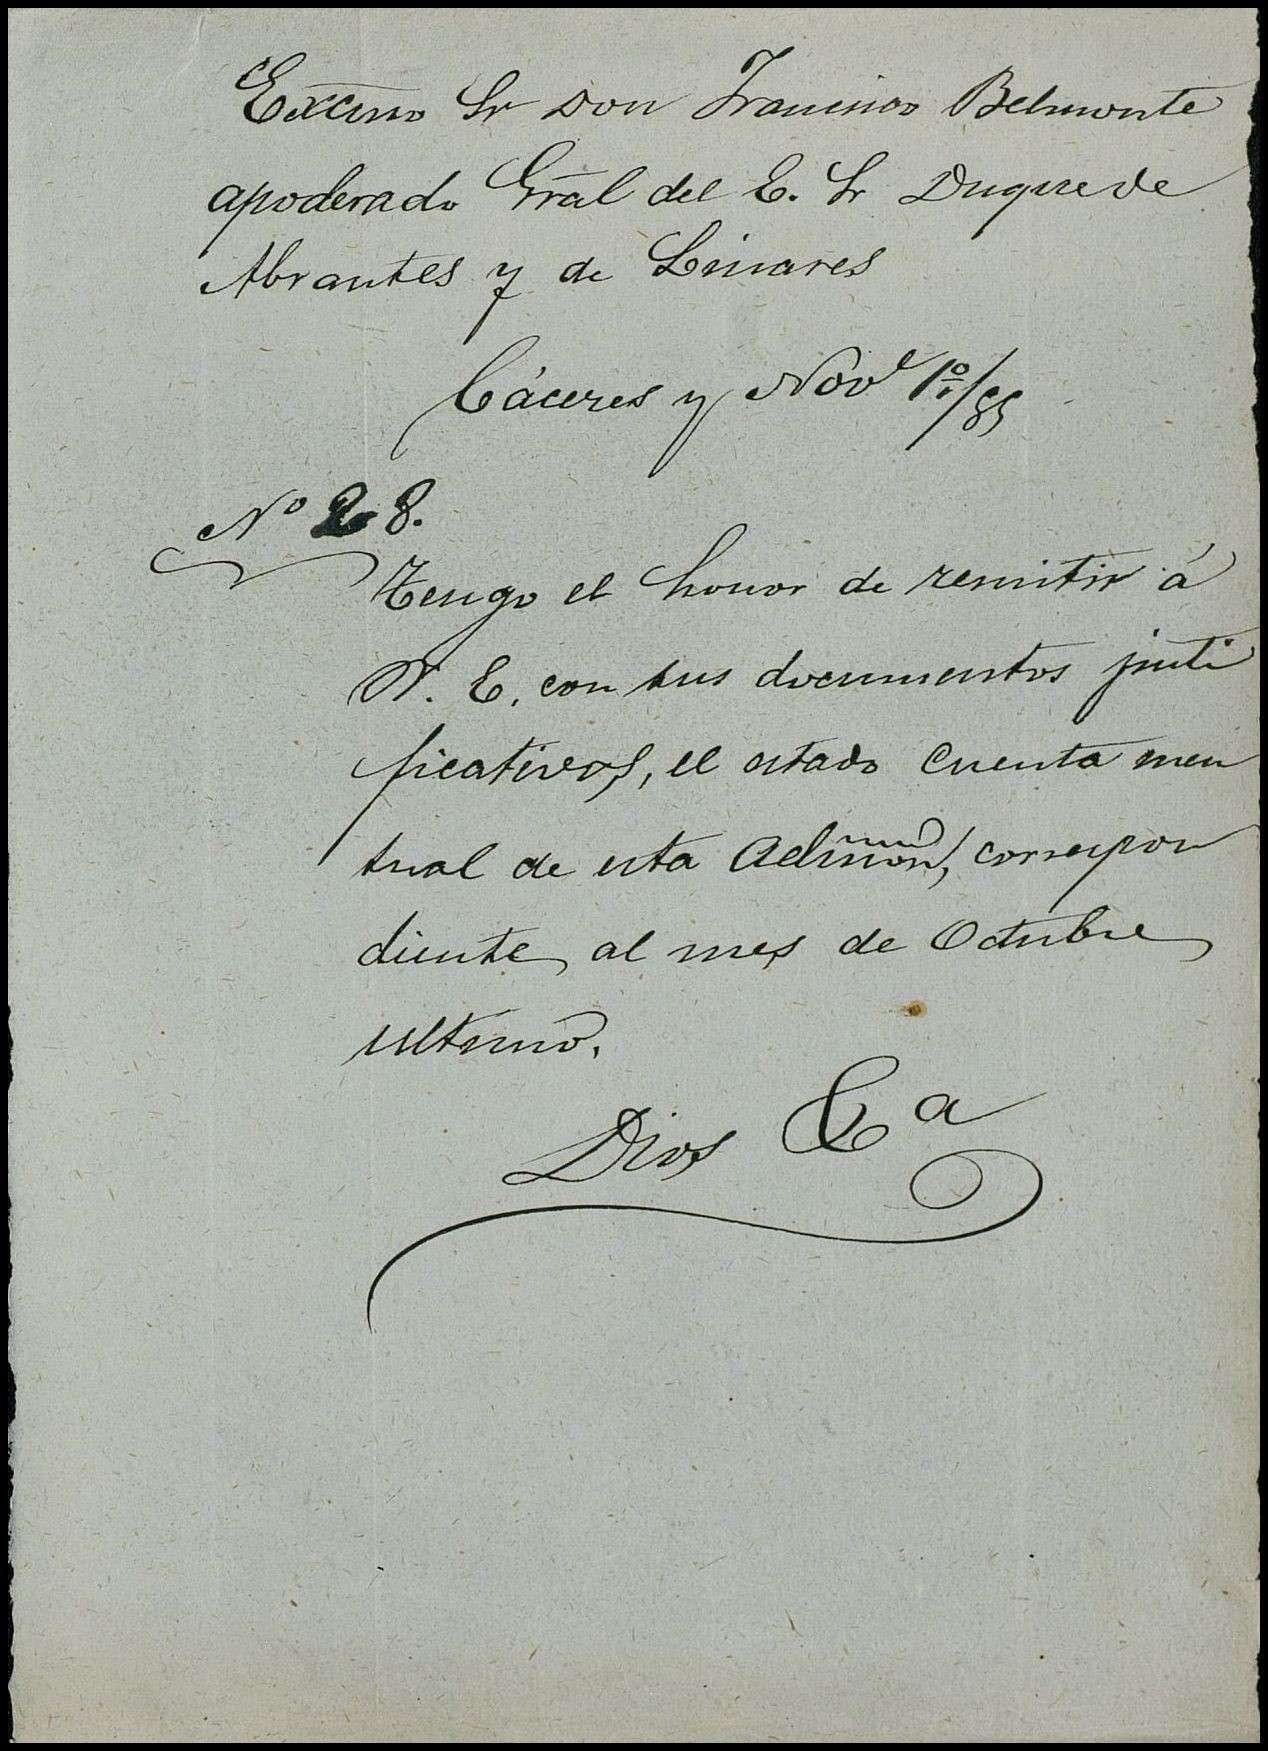 Excmo Sr Don Francisco Belmonte
apoderado Gral del E. Sr Duque de
Abrantes y de Linares
Cáceres y Nove 1º/85
Nº 28.
Tengo el honor de remitir á
V. E. con sus documentos justi
ficativos, el estado cuenta men
sual de esta Admon, correspon
diente al mes de Octubre
ultimo.
Dios &a